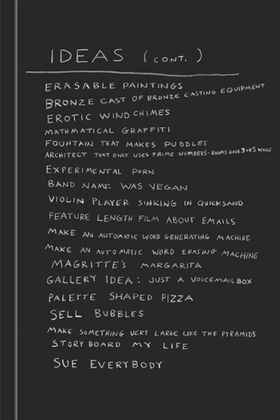 IDEAS (CONT.)
ERASABLE PAINTINGS
BRONZE CAST OF BRONZE CASTING EQUIPMENT
EROTIC WIND CHIMES
MATHMATICAL GRAFFITI
FOUNTAIN THAT MAKES PUDDLES
ARCHITECT THAT ONLY USES PRIME NUMBERS - ROOMS HAVE 3 OR 5 WALLS
EXPERIMENTAL PORN
BAND NAME: WAS VEGAN
VIOLIN PLAYER SINKING IN QUICKSAND
FEATURE LENGTH FILM ABOUT EMAILS
MAKE AN AUTOMATIC WORD GENERATING MACHINE
MAKE AN AUTOMATIC WORD ERASING MACHINE
MAGRITTE'S MARGARITA
GALLERY IDEA: JUST A VOICEMAILBOX
PALETTE SHAPED PIZZA
SELL BUBBLES
MAKE SOMETHING VERY LARGE LIKE THE PYRAMIDS
STORYBOARD MY LIFE
SUE EVERYBODY